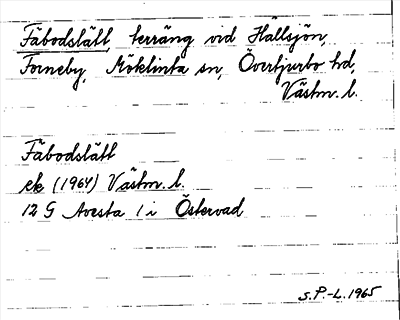 Fäbodslätt, terräng vid Hällsjön,
Forneby, Möklinta sn, Övertjurbo hd,
Västm. l.
Fäbodslätt
ek (1964) Västm. l.
12 G Avesta 1 i Östervad
S.P.-L. 1965